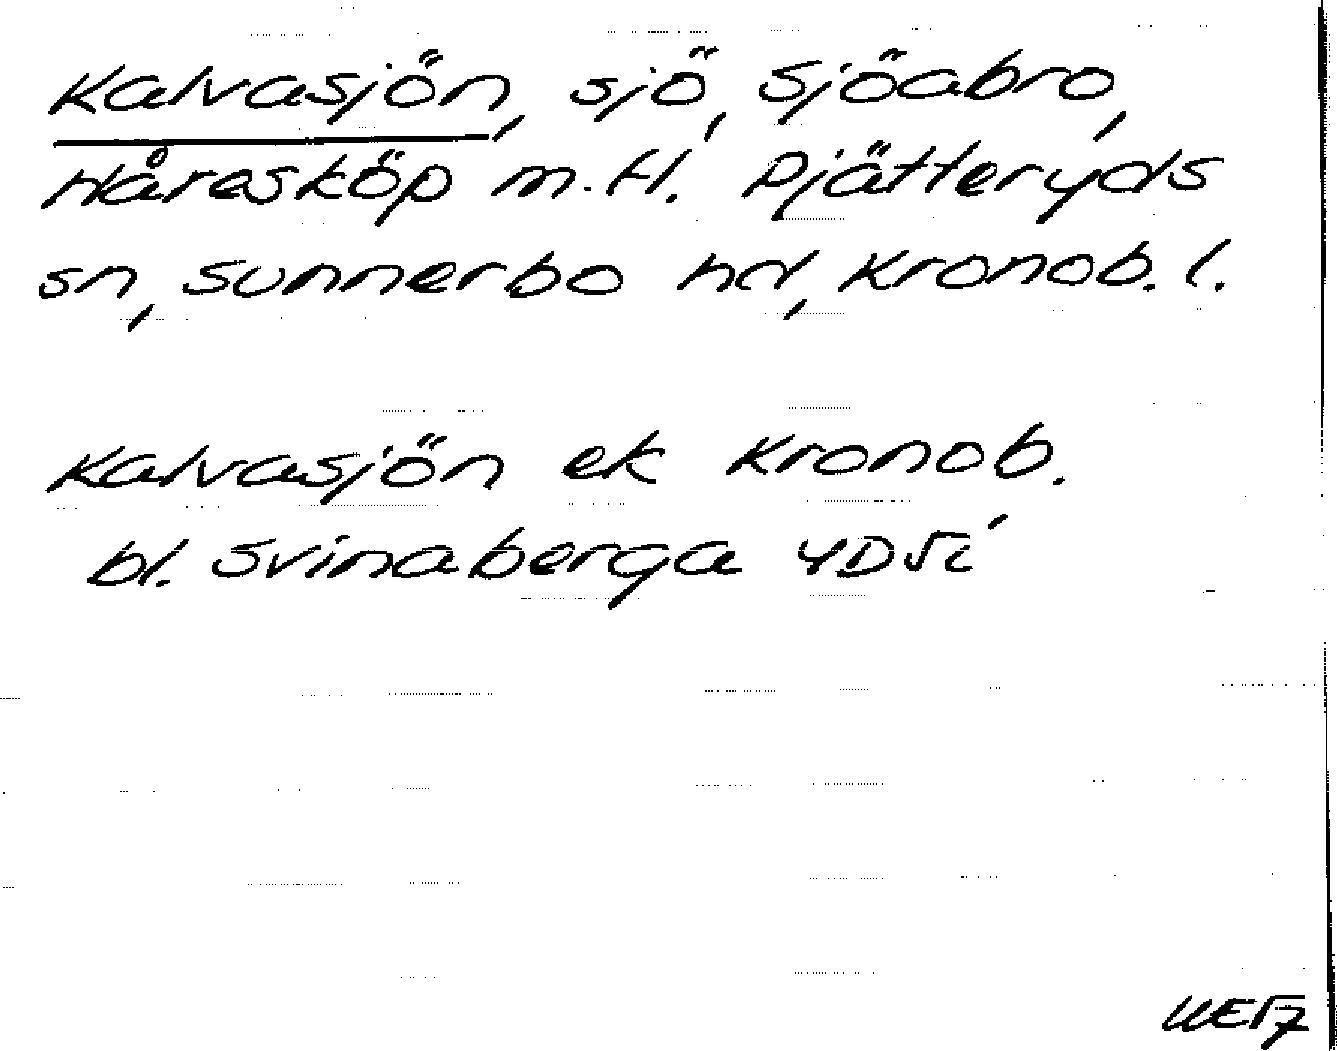 Kalvasjön, sjö, Sjöabro,
Håresköp m.fl. Pjätteryds
sn, Sunnerbo hd, Kronob. l.
Kalvasjön ek Kronob.
bl. Svinaberga